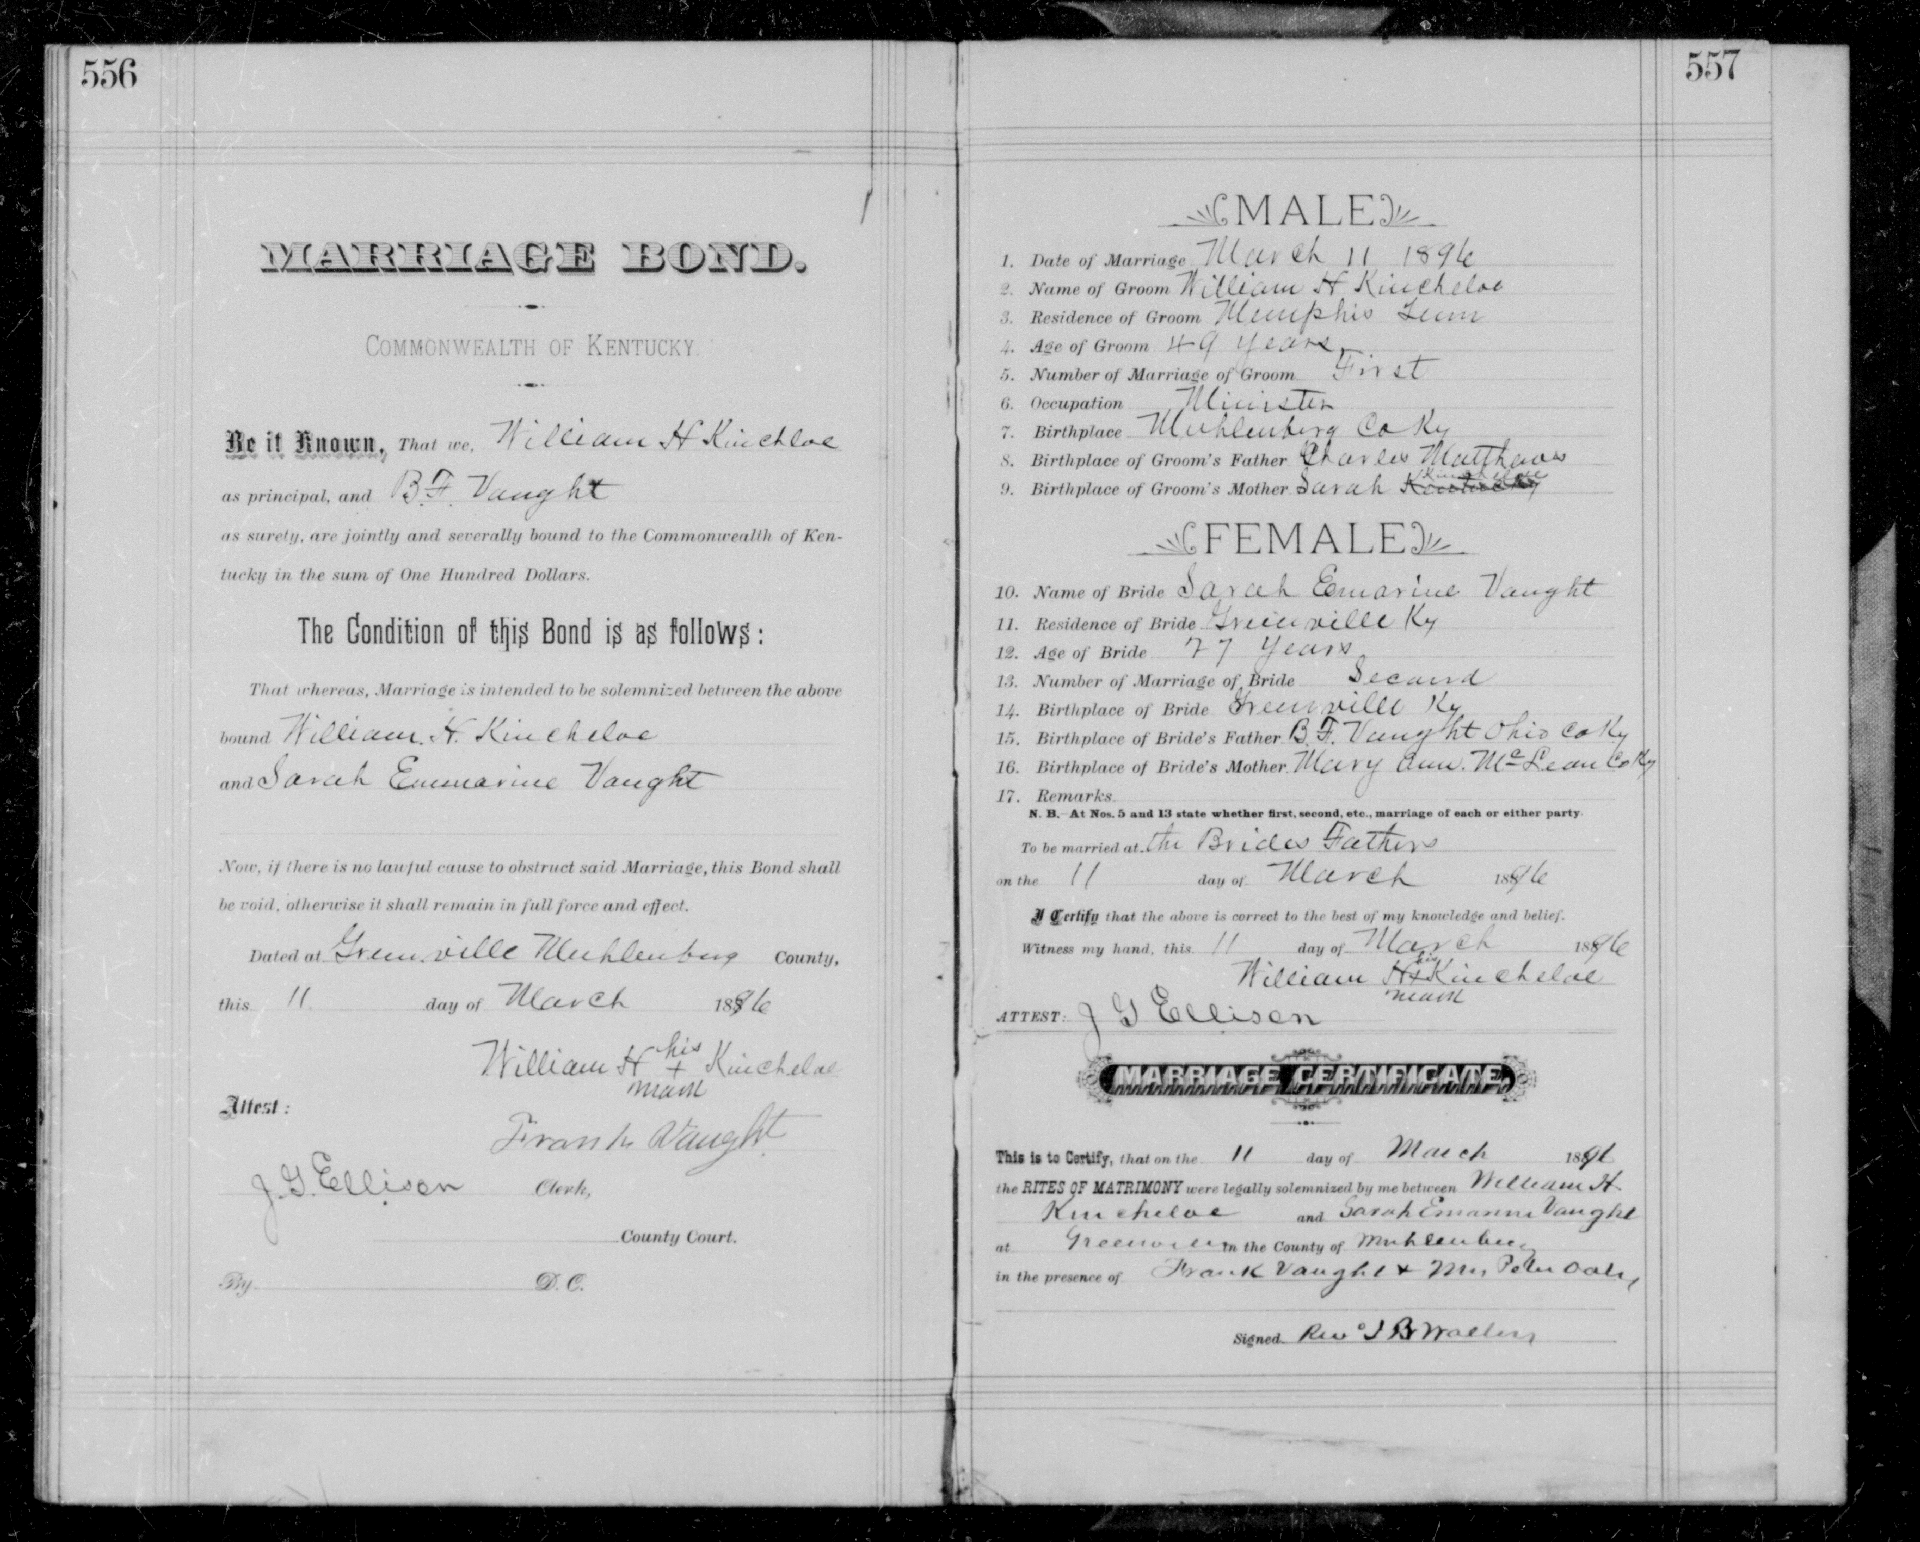 556
MARRIAGE BOND.
COMMONWEALTH OF KENTUCKY.
Be it Known, That we, William H Kinchloe
as principal, and B.F. Vaught
as surety, are jointly and severally bound to the Commonwealth of Ken-
tucky in the sum of One Hundred Dollars.
The Condition of this Bond is as follows:
That whereas, Marriage is intended to be solemnized between the above
bound William H. Kincheloe
and Sarah Emmarine Vaught
Now, if there is no lawful cause to obstruct said Marriage, this Bond shall
be void, otherwise it shall remain in full force and effect.
Dated at Greenville Muhlenberg County,
this 11 day of March 1896
William H his + mark Kincheloe
Attest:
Frank Vaught
J. G. Ellison Clerk,
County Court.
By D. C.
557
MALE
1. Date of Marriage March 11 1896
2. Name of Groom William H Kincheloe
3. Residence of Groom Memphis Tenn
4. Age of Groom 49 years
5. Number of Marriage of Groom First
6. Occupation Minister
7. Birthplace Muhlenberg Co Ky
8. Birthplace of Groom's Father Charles Matthews
9. Birthplace of Groom's Mother Sarah Kincheloe
FEMALE
10. Name of Bride Sarah Emarine Vaught
11. Residence of Bride Greenville Ky
12. Age of Bride 27 Years
13. Number of Marriage of Bride Second
14. Birthplace of Bride Greenville Ky
15. Birthplace of Bride's Father B.F. Vaught Ohio Co Ky
16. Birthplace of Bride's Mother Mary Ann. McLean Co Ky
17. Remarks
N. B.—At Nos. 5 and 13 state whether first, second, etc., marriage of each or either party.
To be married at the Brides Fathers
on the 11 day of March 1896
I Certify that the above is correct to the best of my knowledge and belief.
Witness my hand, this 11 day of March 1896
William H his + mark Kincheloe
ATTEST: J G Ellison
MARRIAGE CERTIFICATE.
This is to Certify, that on the 11 day of March 1896
the RITES OF MATRIMONY were legally solemnized by me between William H
Kincheloe and Sarah Vaught
at in the County of Muhlenberg
in the presence of Frank Vaught + Mrs Peter
Signed Rev J B